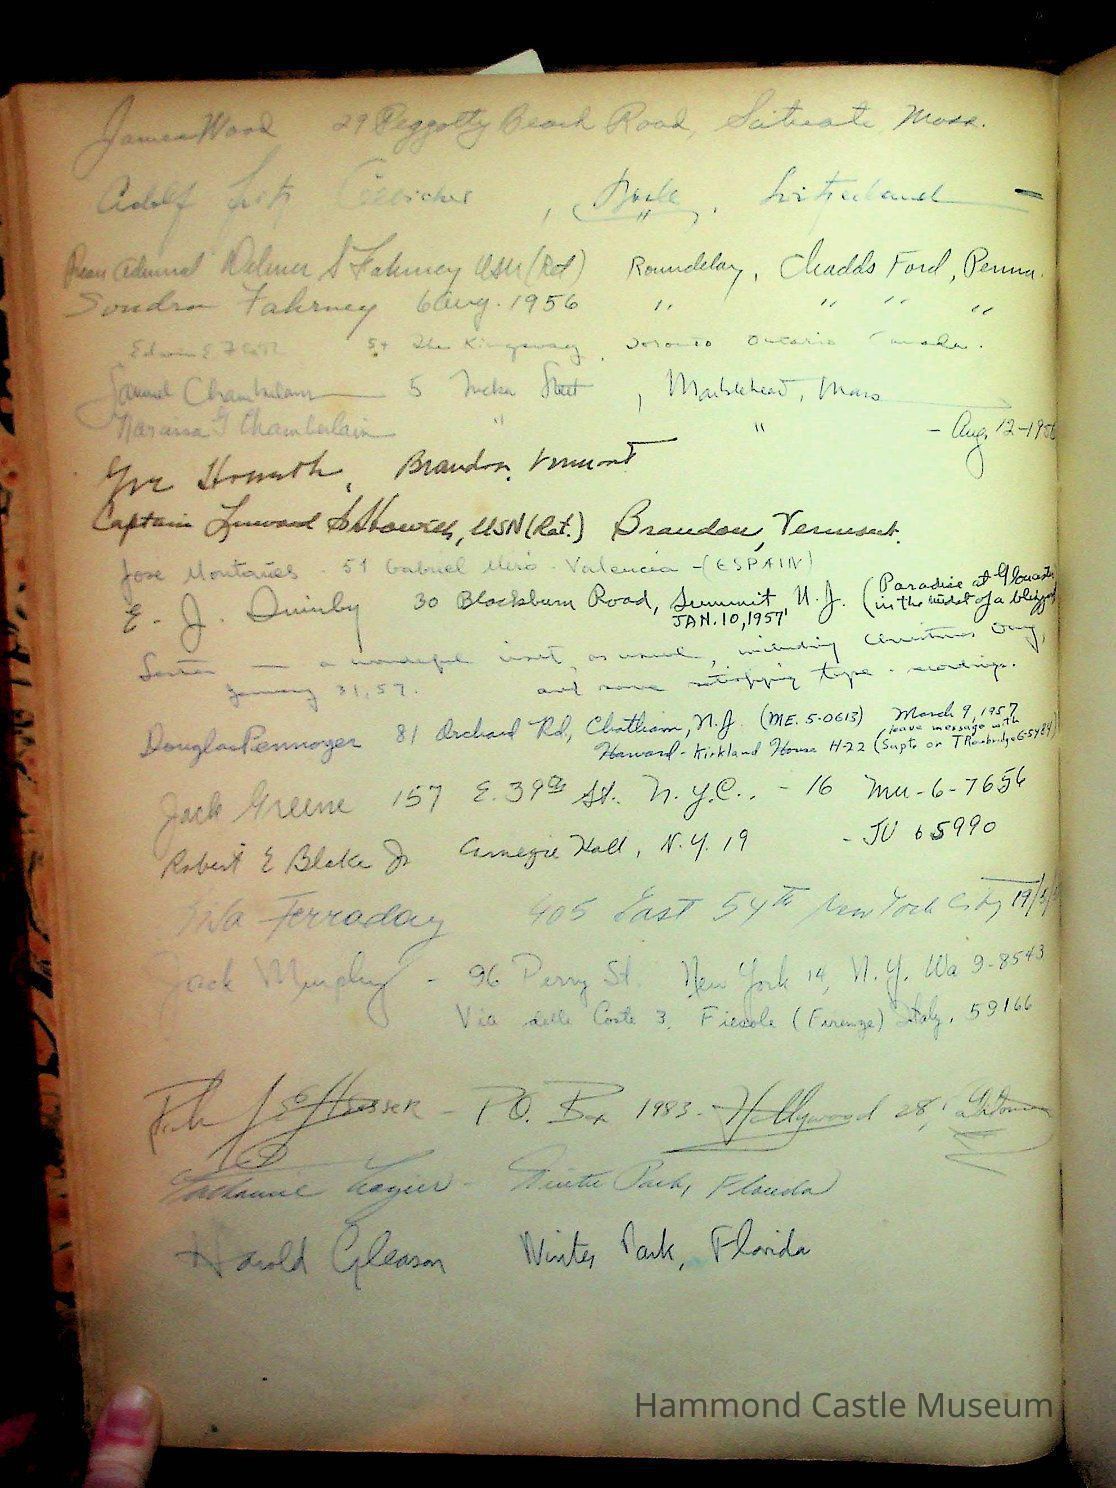 James Wood 29 Peggotty Beach Road, Scituate, Mass.
Adolf Fritz , , Switzerland
Rear Admiral Delmer S Fahrney USN (Ret) Roundelay, Chadds Ford, Penna.
Sondra Fahrney 6 Aug. 1956 " " " "
Edwin E 54 The Kingsway, Toronto Ontario Canada.
Samuel Chamberlain 5 Street, Marblehead, Mass
Narcissa G Chamberlain " " - Aug 12-1956
Howeth, Brandon, Vermont
Captain Howeth, USN (Ret.) Brandon, Vermont.
Jose Montañes - 51 Gabriel Miró - Valencia - (ESPAÑA)
E. J. Quinby 30 Blackburn Road, Summit N.J. (Paradise at Gloucester
JAN. 10, 1957 in the midst of a blizzard
— a wonderful visit, as usual, including Christmas Day,
January 31, 57. and some satisfying tape recordings.
Douglas Pennoyer 81 Orchard Rd, Chatham, N.J. (ME. 5-0613) March 9, 1957
Harvard - Kirkland House H-22 (leave message with Supts or TRowbridge 6-5484)
Jack Greene 157 E. 39th St. N.Y.C.. - 16 MU-6-7656
Robert E Blake Jr Carnegie Hall, N.Y. 19 - JU 65990
Ferraday 405 East 54th New York City
Jack Murphy - 96 Perry St. New York 14, N.Y. Wa 9-8543
Via delle Coste 3, Fiesole (Firenze) Italy. 59166
- P.O. Box 1983 - Hollywood 28,
- Winter Park, Florida
Harold Gleason Winter Park, Florida
Hammond Castle Museum